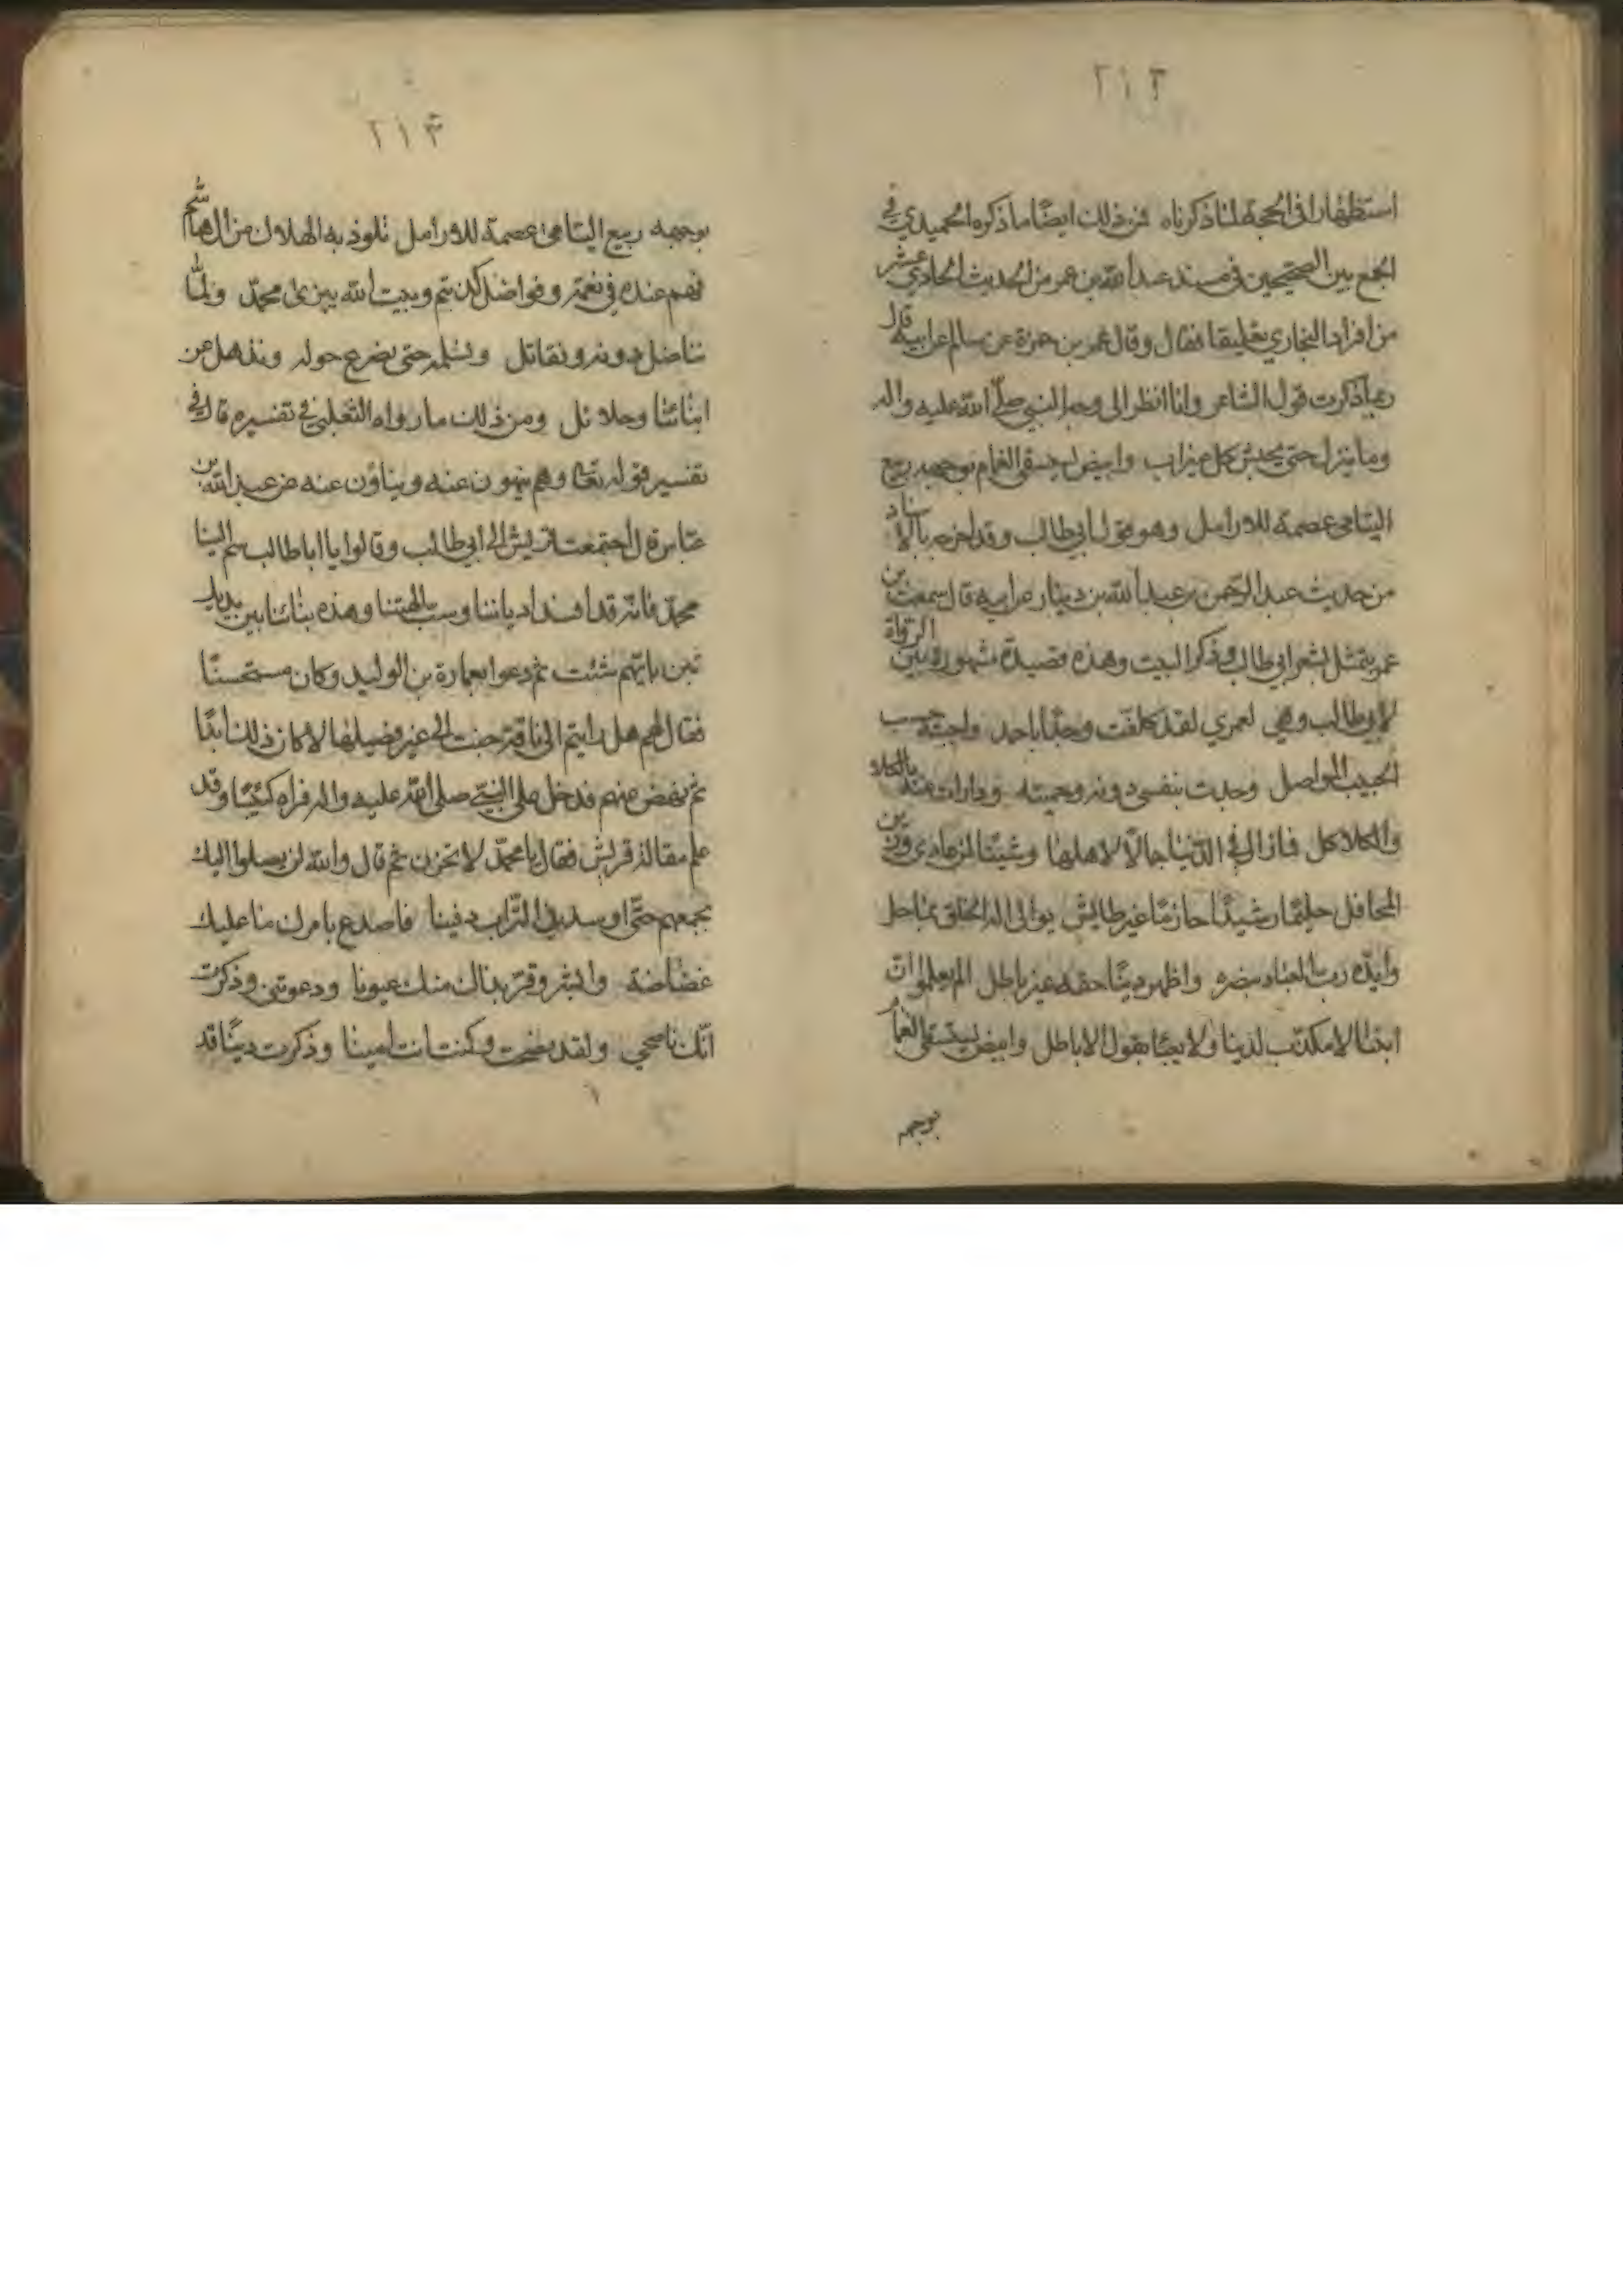 ٢١٢
استظهارا في الحجة لما ذكرناه فمن ذلك ايضًا ما ذكره الحميدي في
الجمع بين الصحيحين في مسند عبد الله بن عمر من الحديث الحادي عشر
من افراد البخاري تعليقا فقال وقال عمر بن حمزة عن سالم عن ابيه قال
ربما ذكرت قول الشاعر وانا انظر الى وجه النبي صلّى الله عليه واله
وما ينزل حتى يجيش كل ميزاب وابيض يستسقى الغمام بوجهه ربيع
اليتامى عصمة للارامل وهو قول ابي طالب وقد اخرجه بالاسناد
من حديث عبد الرحمن بن عبد الله بن دينار عن ابيه قال سمعت بن
عمر يتمثل بشعر ابي طالب وذكر البيت وهذه قصيدة مشهورة بين الرواة
لابي طالب وهي لعمري لقد كلفت وجدًا باحمد واحببته حب
الحبيب المواصل وجدت بنفسي دونه وحميته ودارات عنه بالطلا
والكلاكل فما زال في الدّنيا جمالًا لاهلها وشينًا لمن عادى وزين
المحافل حليمًا رشيدًا حازمًا غير طايش يوالي اله الخلق ليس بماحل
وايّده رب العباد بنصره واظهر دينًا حقه غير باطل الم تعلموا ان
ابننا لا مكذّب لدينا ولا يعبأ بقول الاباطل وابيض يستسقى الغمام
بوجهه
٢١٣
بوجهه ربيع اليتامى عصمة للارامل تلوذ به الهلاك من ال هاشم
فهم عنده في نعمة وفواضل كذبتم وبيت الله يبزى محمدّ ولمّا
نناضل دونه ونقاتل ونسلمه حتى نصرع حوله ونذهل عن
ابنائنا وحلائل ومن ذلك ما رواه الثعلبي في تفسيره قال في
تفسير قوله تعالى وهم ينهون عنه وينأون عنه عن عبد الله بن
عباس قال اجتمعت قريش الى ابي طالب وقالوا يا ابا طالب سلم الينا
محمدّ فانه قد افسد ادياننا وسب الهتنا وهذه ابناءنا بين يديك
تبن بايهم شئت ثم دعوا بعمارة بن الوليد وكان مستحسنًا
فقال لهم هل رايتم الى ناقة حنت الى غير فصيلها لا كان ذلك ابدًا
ثم نهض عنهم فدخل على النبي صلى الله عليه واله فراه كئيبًا وقد
علم مقالة قريش فقال يا محمدّ لا تحزن ثم قال والله لن يصلوا اليك
بجمعهم حتّى اوسد في التّراب دفينا فاصدع بامرك ما عليك
غضاضة وابشر وقر بذاك منك عيونا ودعوتني وذكرت
انّك ناصحي ولقد نصحت وكنت انت امينا وذكرت دينًا قد